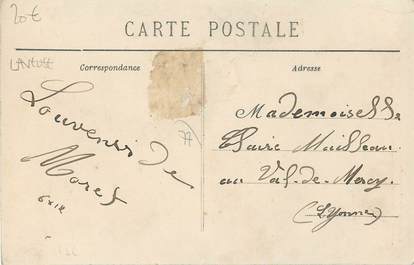 20€
CARTE POSTALE
Correspondance
Adresse
Souvenir de
Moret
Mademoiselle
Claire Mailleau
au Val-de-Mercy
(Yonne)